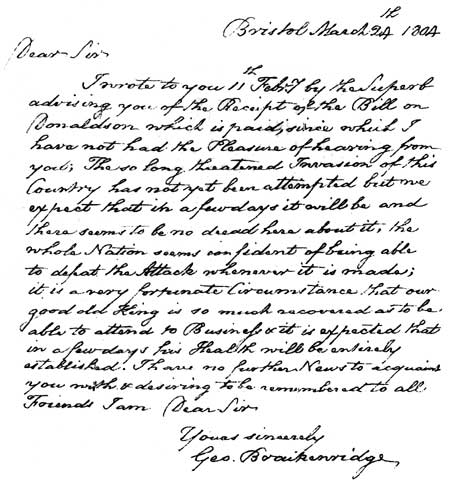 Bristol March 24th 1804
Dear Sir
I wrote to you 11th Feby by the Superb
advising you of the Receipt of the Bill on
Donaldson which is paid, since which I
have not had the Pleasure of hearing from
you; The so long theatened Invasion of this
Country has not yet been attempted but we
expect that in a few days it will be and
there seems to be no dread here about it; the
whole Nation seems confident of being able
to defeat the Attack whenever it is made;
it is a very fortunate Circumstance that our
good old King is so much recovered as to be
able to attend to Business & it is expected that
in a few days his Health will be entirely
established. I have no further News to acquaint
you with & desiring to be remembered to all
Friends I am Dear Sir
Yours sincerely
Geo. Braikenridge